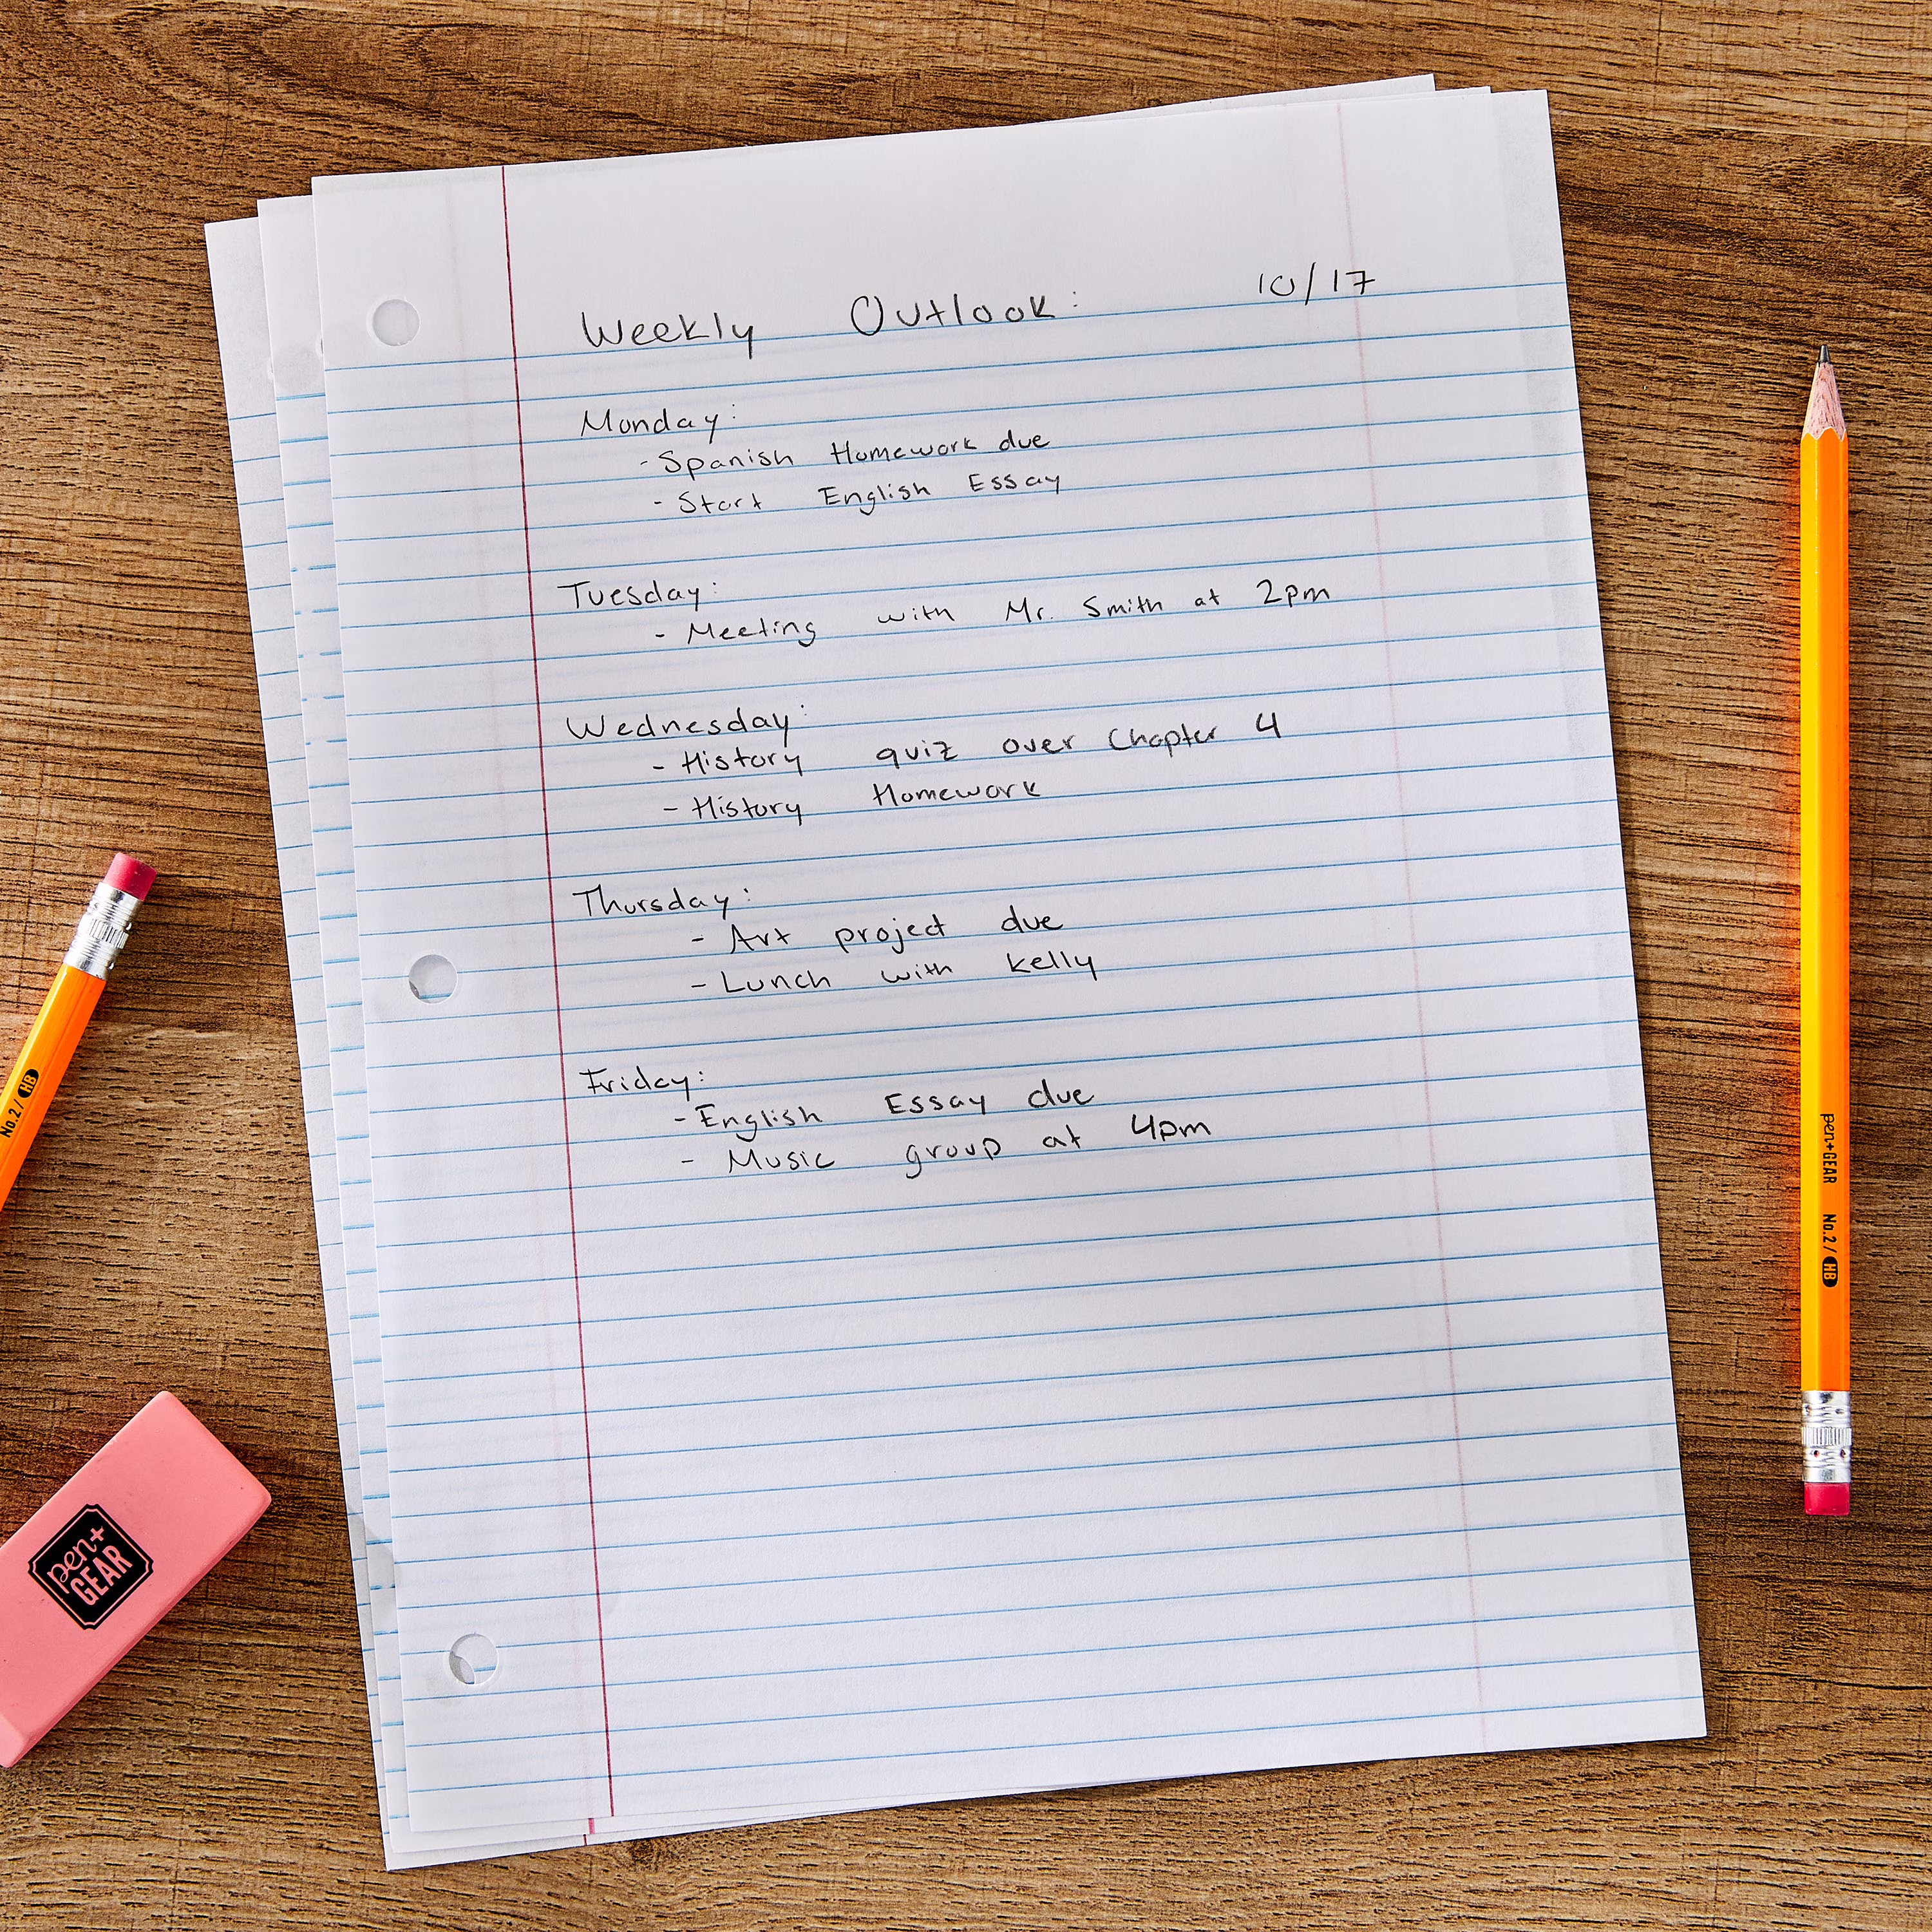 Weekly Outlook: 10/17
Monday:
- Spanish Homework due
- Start English Essay
Tuesday:
- Meeting with Mr. Smith at 2pm
Wednesday:
- History quiz over Chapter 4
- History Homework
Thursday:
- Art project due
- Lunch with Kelly
Friday:
- English Essay due
- Music group at 4pm
No.2/HB
pen+
GEAR
pen+GEAR No.2/HB